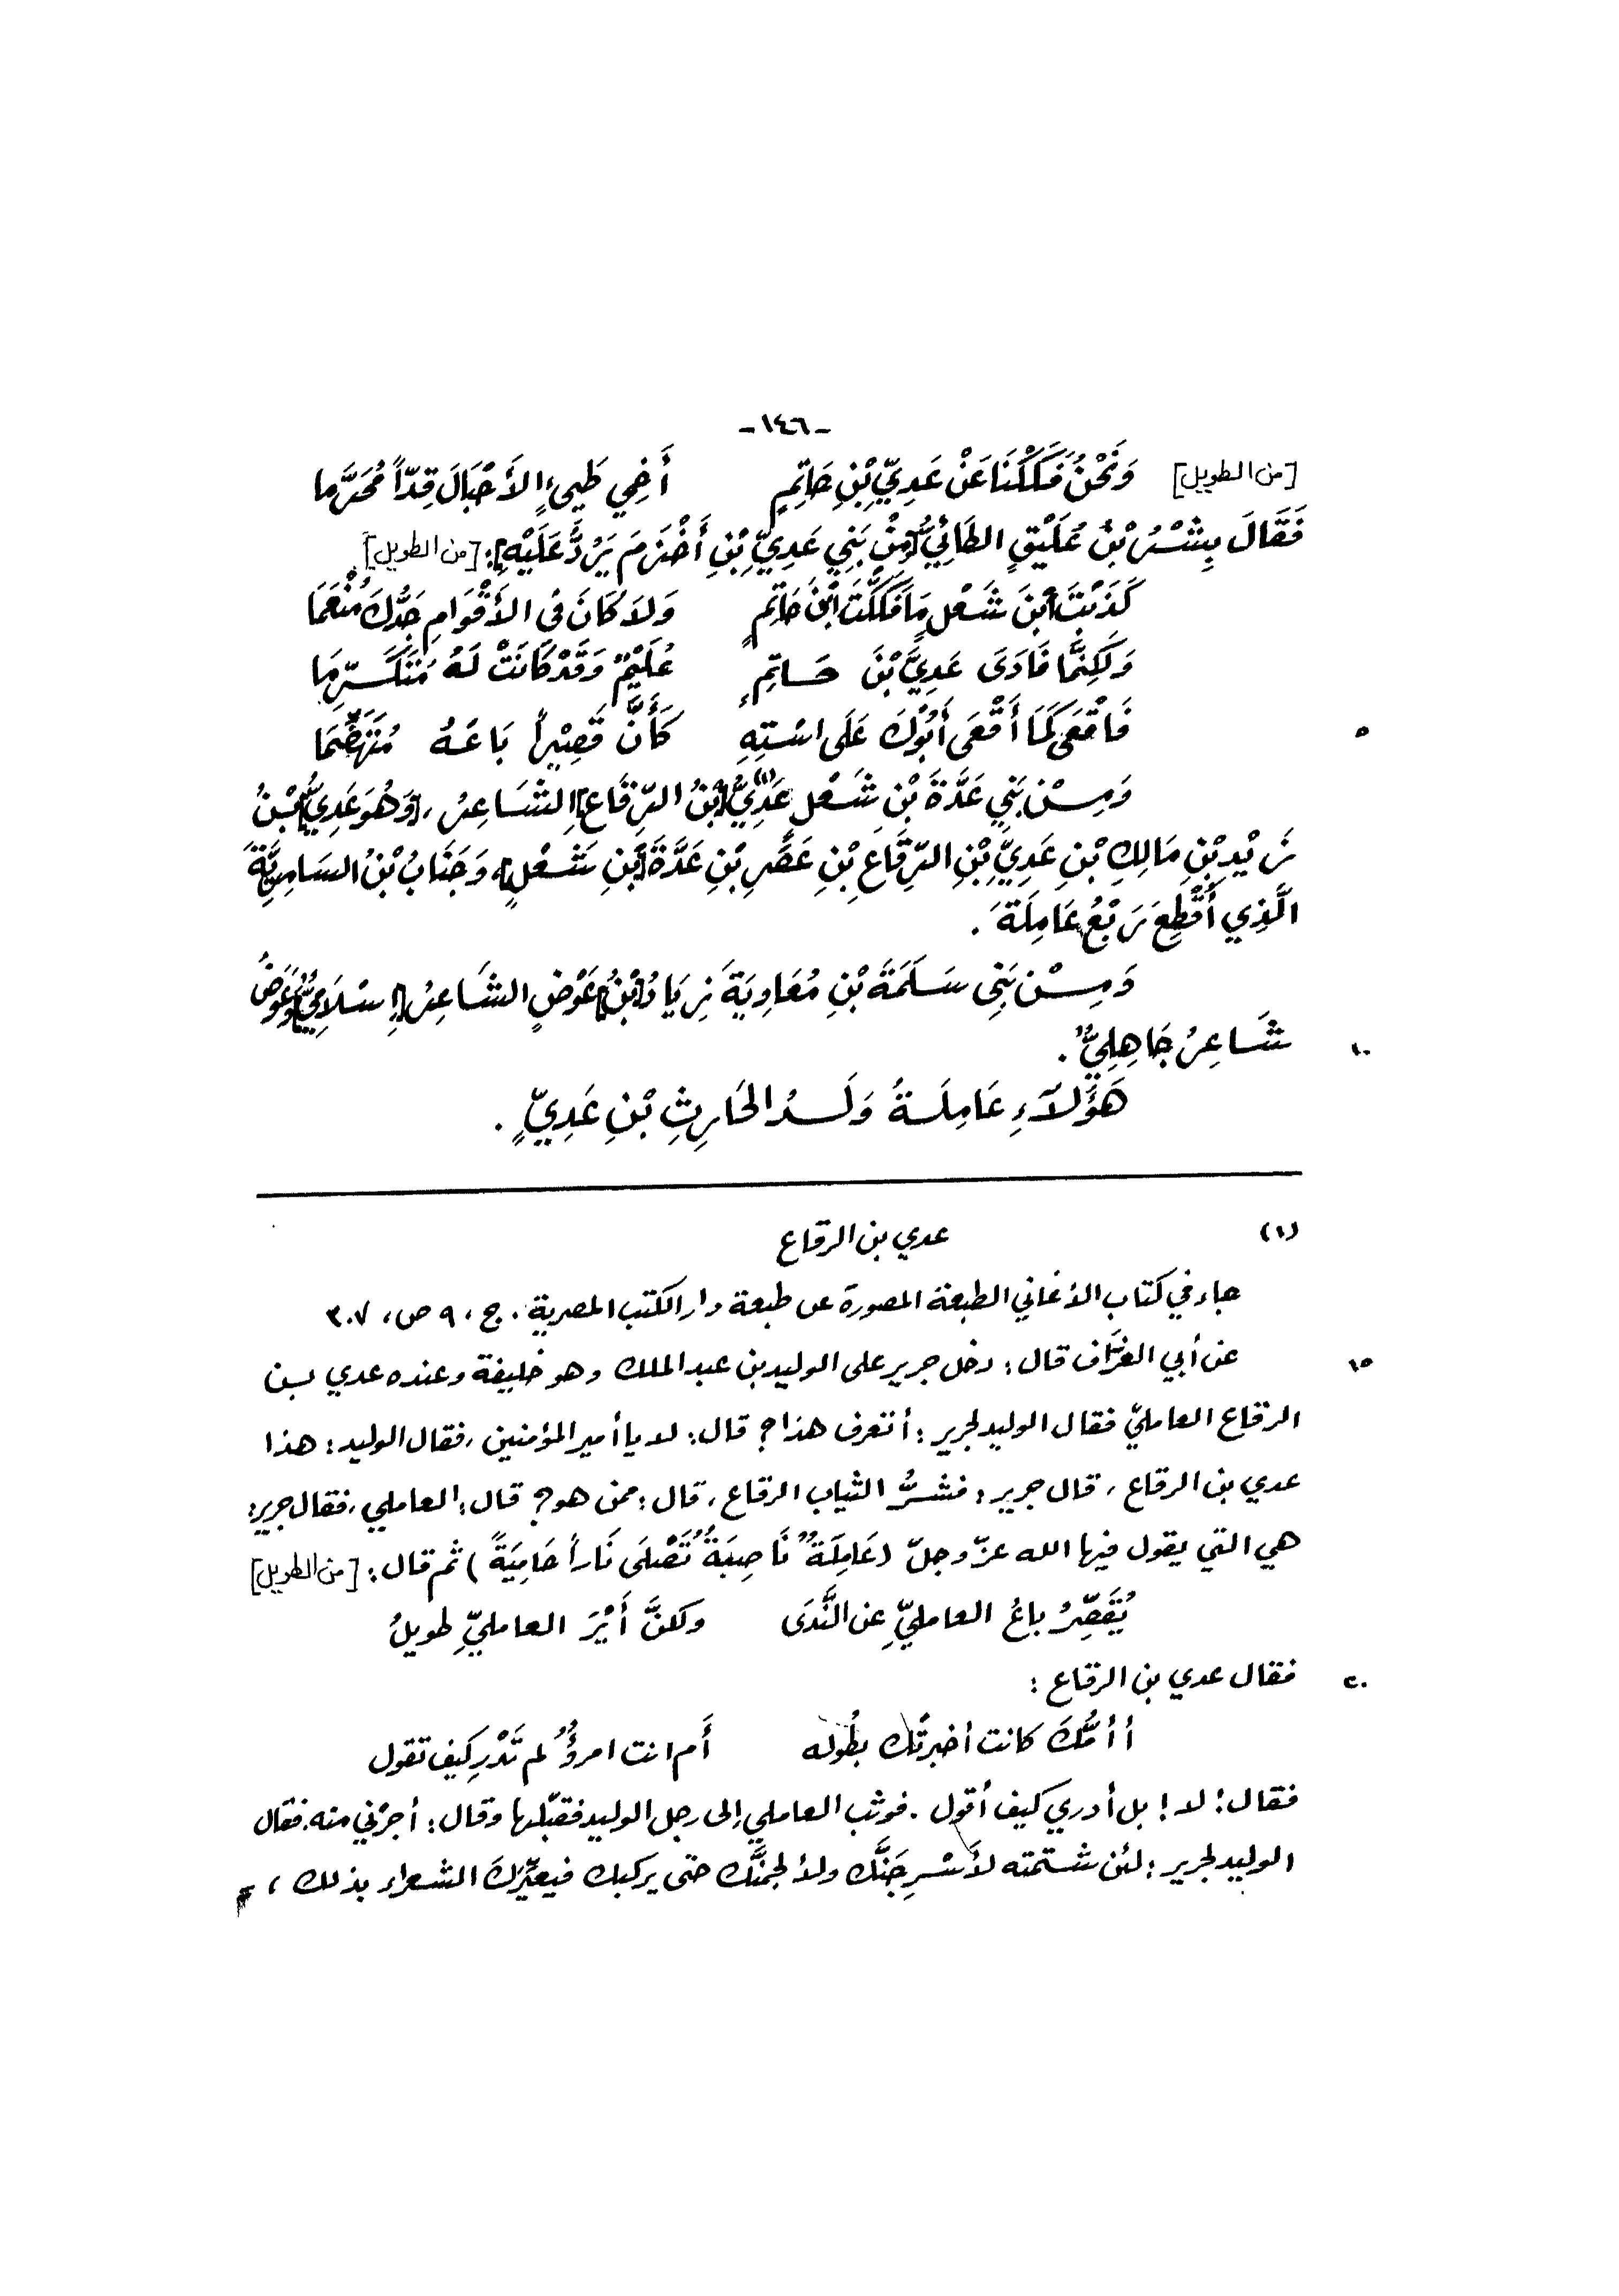 -١٤٦-
[من الطويل] وَنَحْنُ فَكَكْنَا عَنْ عَدِيِّ بْنِ حَاتِمٍ أَخِي طَيِيءٍ الأَحْبَالَ قِدّاً مُحَرَّما
فَقَالَ بِشْرُ بْنُ عُلَيْقٍ الطَائِيُّ [مِنْ بَنِي عَدِيِّ بْنِ أَخْزَمَ يَرُدُّ عَلَيْهِ]: [من الطويل]
كَذَبْتَ ابْنَ شَعْلٍ مَا فَكَكْتَ ابْنَ حَاتِمٍ وَلاَ كَانَ فِي الأَقْوَامِ جَدُّكَ مُنْعِمَا
وَلَكِنَّمَا فَادَى عَدِيَّ بْنَ حَاتِمٍ عُلَيْمٌ وَقَدْ كَانَتْ لَهُ مُتَنَكَّرِّمَا
٥ فَاقْعَى كَمَا أَقْعَى أَبُوْكَ عَلَى اسْتِهِ كَأَنَّ قَصِيْراً بَاعَهُ مُتَهَضِّمَا
وَمِنْ بَنِي عَدَّةَ بْنِ شَعْلٍ عَدِيُّ (١) [بْنُ الرِّقَاعِ] الشَاعِرُ، [وَهُوَ عَدِيُّ] بْنُ
زَيْدِ بْنِ مَالِكِ بْنِ عَدِيِّ بْنِ الرِّقَاعِ بْنِ عَصَرِ بْنِ عَدَّةَ [بْنِ شَعْلٍ]، وَجَنَابُ بْنُ السَامِرِيَّةِ
الَّذِي أُقْطِعَ رَبْعُ عَامِلَةَ .
وَمِنْ بَنِي سَلَمَةَ بْنِ مُعَاوِيَةَ زِيَادُ [بْنُ] عَوْضٍ الشَاعِرُ [إِسْلَامِيٌّ] وَعَوْضٌ
١٠ شَاعِرُ جَاهِلِيٌّ .
هَؤُلاَءِ عَامِلَةُ وَلَدُ الحَارِثِ بْنِ عَدِيٍّ .
(١) عدي بن الرقاع
جاء في كتاب الأغاني الطبعة المصورة عن طبعة دار الكتب المصرية . ج ، ٩ ص ، ٣٠٧
١٥ عن أبي الغرَّاف قال : دخل جرير على الوليد بن عبد الملك وهو خليفة وعنده عدي بن
الرقاع العامليّ فقال الوليد لجرير : أتعرف هذا ؟ قال : لا يا أمير المؤمنين ، فقال الوليد : هذا
عدي بن الرقاع ، قال جرير : فشرُّ الثياب الرقاع ، قال : ممن هو ؟ قال : العاملي ، فقال جرير :
هي التي يقول فيها الله عزّ وجلّ (عَامِلَةٌ نَاصِبَةٌ تَصْلَى نَاراً حَامِيَةً) ثم قال : [من الطويل]
يُقَصِّرُ باعُ العامليِّ عن النَّدَى ولكنَّ أَيْرَ العامليِّ طويلُ
٢٠ فقال عدي بن الرقاع :
أأمُّكَ كانت أخبرتْك بطُوله أَم انت امرؤٌ لم تَدْرِ كيف تقول
فقال : لا ! بل أدري كيف أقول . فوثب العاملي إلى رجل الوليد فقبّلها وقال : أجرْني منه . فقال
الوليد لجرير : لئن شتمته لأَسْرِجَنَّك ولألجمنَّك حتى يركبك فيعيِّرك الشعراء بذلك ، =